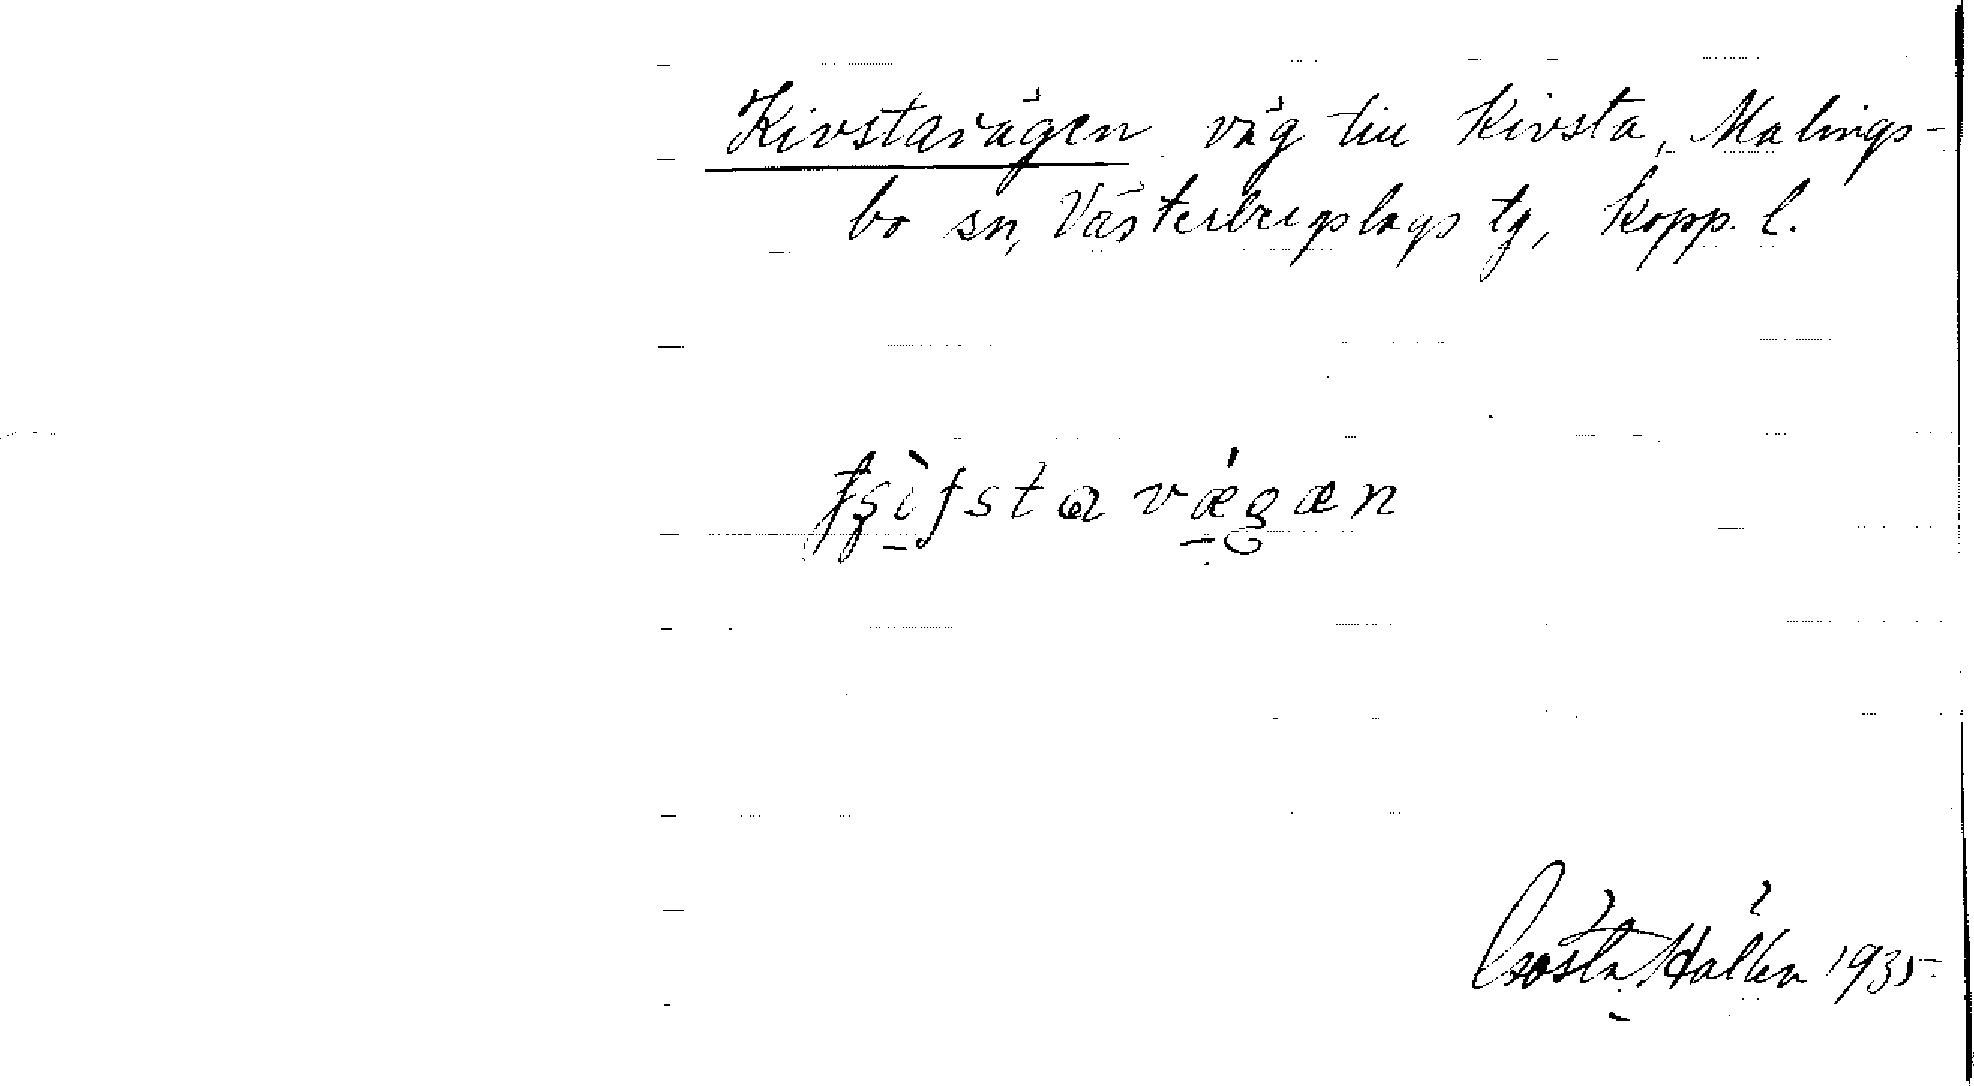 Kivstavägen väg till Kivsta, Malings-
bo sn, Västerbergslags tg, Kopp. l.
vǽgæn
Gösta Hallén 1935